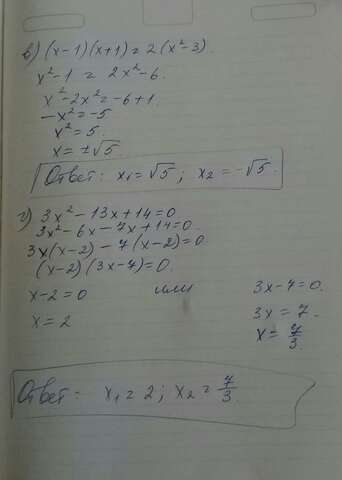 в) (x-1)(x+1) = 2(x²-3).
x²-1 = 2x²-6.
x²-2x² = -6+1.
-x² = -5
x² = 5.
x = ±√5.
Ответ: x₁ = √5; x₂ = -√5.
г) 3x²-13x+14=0
3x²-6x-7x+14=0.
3x(x-2)-7(x-2)=0.
(x-2)(3x-7)=0.
x-2=0 или 3x-7=0.
x=2 3x=7.
x=7/3.
Ответ: x₁=2; x₂=7/3.